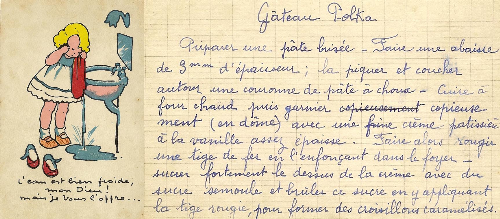 Gâteau Polka
Préparer une pâte brisée - Faire une abaisse
de 3mm d'épaisseur ; la piquer et coucher
autour une couronne de pâte à choux - Cuire à
four chaud puis garnir copieusement copieuse-
ment (en dôme) avec une fine crème patissière
à la vanille assez épaisse. Faire alors rougir
une tige de fer en l'enfonçant dans le foyer -
sucrer fortement le dessus de la crème avec du
sucre semoule et brûler ce sucre en y appliquant
la tige rougie, pour former des croisillons caramélisés.
L'eau est bien froide,
mon Dieu !
mais je vous l'offre...